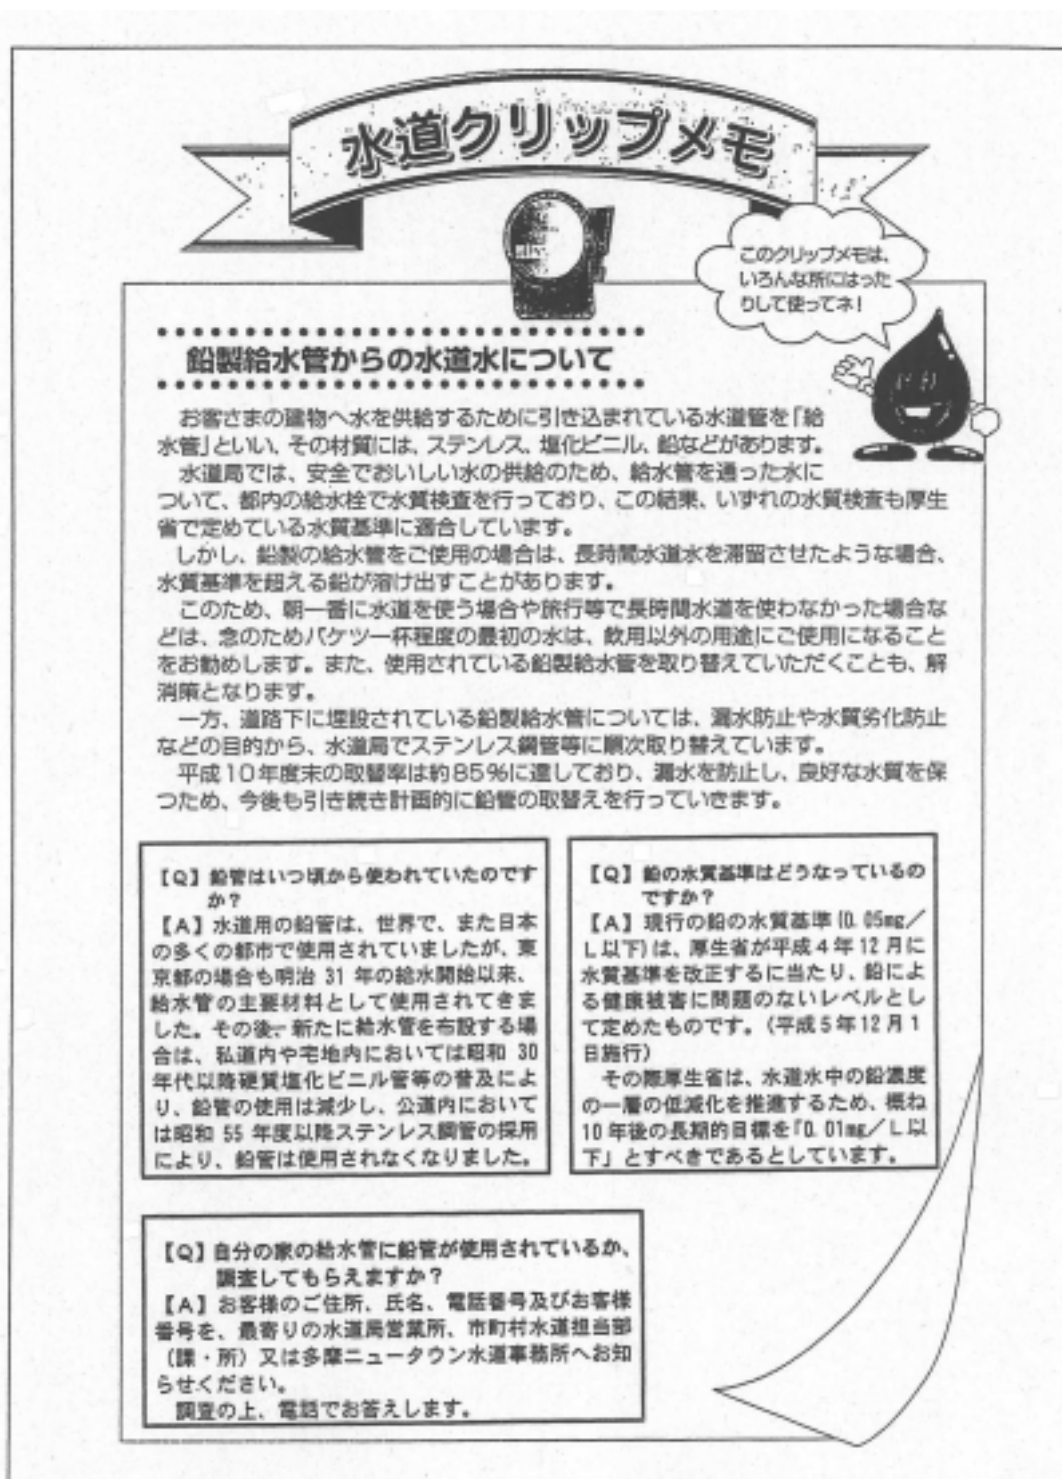 水道クリップメモ
このクリップメモは、
いろんな所にはった
りして使ってネ！
鉛製給水管からの水道水について
お客さまの建物へ水を供給するために引き込まれている水道管を「給
水管」といい、その材質には、ステンレス、塩化ビニル、鉛などがあります。
水道局では、安全でおいしい水の供給のため、給水管を通った水に
ついて、都内の給水栓で水質検査を行っており、この結果、いずれの水質検査も厚生
省で定めている水質基準に適合しています。
しかし、鉛製の給水管をご使用の場合は、長時間水道水を滞留させたような場合、
水質基準を超える鉛が溶け出すことがあります。
このため、朝一番に水道を使う場合や旅行等で長時間水道を使わなかった場合な
どは、念のためバケツ一杯程度の最初の水は、飲用以外の用途にご使用になること
をお勧めします。また、使用されている鉛製給水管を取り替えていただくことも、解
消策となります。
一方、道路下に埋設されている鉛製給水管については、漏水防止や水質劣化防止
などの目的から、水道局でステンレス鋼管等に順次取り替えています。
平成10年度末の取替率は約85%に達しており、漏水を防止し、良好な水質を保
つため、今後も引き続き計画的に鉛管の取替えを行っていきます。
【Q】鉛管はいつ頃から使われていたのです
か？
【A】水道用の鉛管は、世界で、また日本
の多くの都市で使用されていましたが、東
京都の場合も明治 31 年の給水開始以来、
給水管の主要材料として使用されてきま
した。その後、新たに給水管を布設する場
合は、私道内や宅地内においては昭和 30
年代以降硬質塩化ビニル管等の普及によ
り、鉛管の使用は減少し、公道内において
は昭和 55 年度以降ステンレス鋼管の採用
により、鉛管は使用されなくなりました。
【Q】鉛の水質基準はどうなっているの
ですか？
【A】現行の鉛の水質基準(0.05mg／
L以下)は、厚生省が平成４年12月に
水質基準を改正するに当たり、鉛によ
る健康被害に問題のないレベルとし
て定めたものです。（平成５年12月１
日施行）
その際厚生省は、水道水中の鉛濃度
の一層の低減化を推進するため、概ね
10年後の長期的目標を「0.01mg／Ｌ以
下」とすべきであるとしています。
【Q】自分の家の給水管に鉛管が使用されているか、
調査してもらえますか？
【A】お客様のご住所、氏名、電話番号及びお客様
番号を、最寄りの水道局営業所、市町村水道担当部
（課・所）又は多摩ニュータウン水道事務所へお知
らせください。
調査の上、電話でお答えします。